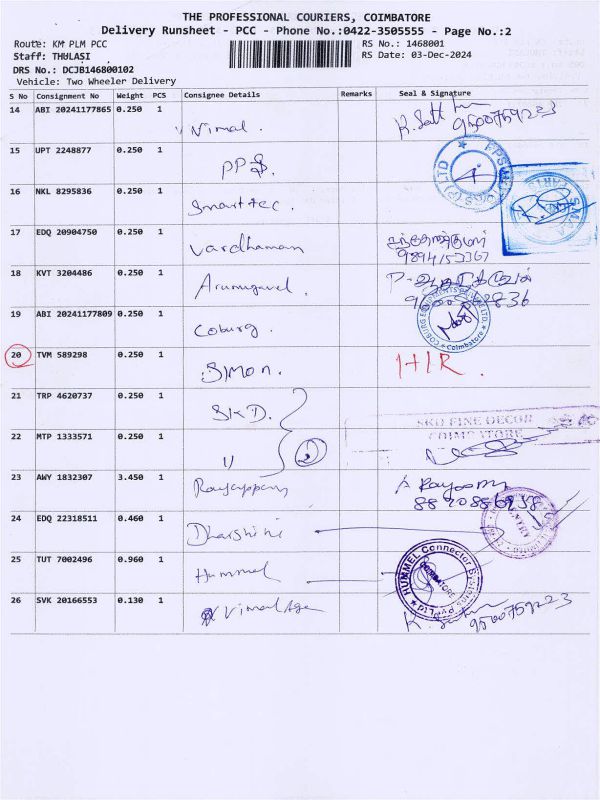 THE PROFESSIONAL COURIERS, COIMBATORE
Delivery Runsheet - PCC - Phone No.:0422-3505555 - Page No.:2
Route: KM PLM PCC
RS No.: 1468001
Staff: THULASI
RS Date: 03-Dec-2024
DRS No.: DCJB146800102
Vehicle: Two Wheeler Delivery
S No Consignment No Weight PCS Consignee Details Remarks Seal & Signature
14 ABI 20241177865 0.250 1 Vimal. 9500759223
15 UPT 2248877 0.250 1 PPS.
16 NKL 8295836 0.250 1 Smarttec.
17 EDQ 20904750 0.250 1 Vardhaman
9894153367
18 KVT 3204486 0.250 1 Arumugavel.
19 ABI 20241177809 0.250 1 Coburg.
COBURG EQUIPMENTS LTD. Coimbatore
20 TVM 589298 0.250 1 Simon. HIR.
21 TRP 4620737 0.250 1 SKD.
SKD FINE DECOR
COIMBATORE
22 MTP 1333571 0.250 1 1) 2
23 AWY 1832307 3.450 1 Rayappan
24 EDQ 22318511 0.460 1 Dharshini
25 TUT 7002496 0.960 1 Hummel
HUMMEL Connector Systems Pvt Ltd COIMBATORE
26 SVK 20166553 0.130 1 Vimal Age 9500759223